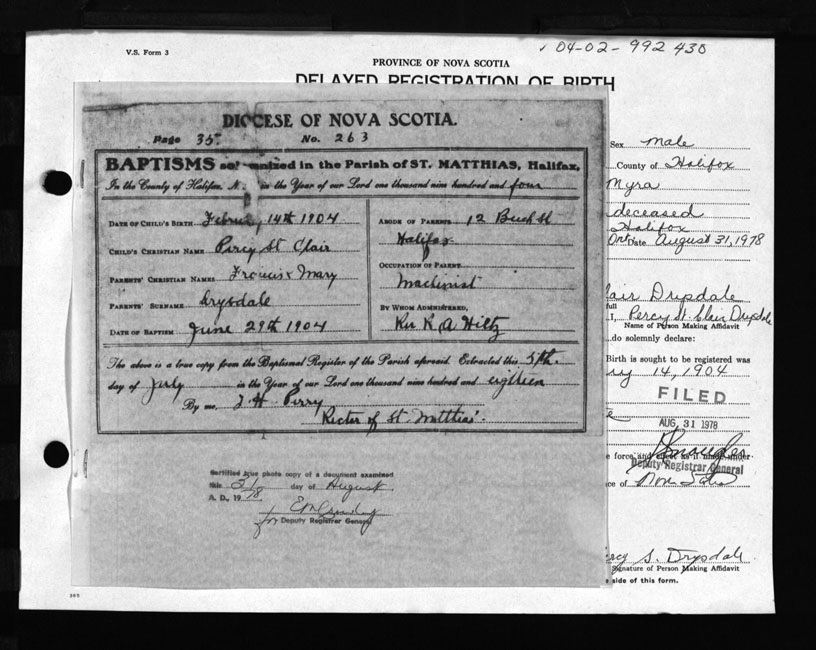 V.S. Form 3
04-02-992 430
PROVINCE OF NOVA SCOTIA
DELAYED REGISTRATION OF BIRTH
DIOCESE OF NOVA SCOTIA.
Page 35 No. 263
BAPTISMS solemnized in the Parish of ST. MATTHIAS, Halifax,
In the County of Halifax, N. in the Year of our Lord one thousand nine hundred and four
DATE OF CHILD'S BIRTH Februy 14th 1904
CHILD'S CHRISTIAN NAME Percy St Clair
PARENTS' CHRISTIAN NAMES Francis & Mary
PARENTS' SURNAME Drysdale
DATE OF BAPTISM June 29th 1904
ABODE OF PARENTS 12 Buch St
Halifax
OCCUPATION OF PARENT
Machinist
BY WHOM ADMINISTERED,
Rev K A Hiltz
The above is a true copy from the Baptismal Register of the Parish aforesaid. Extracted this 5th
day of July in the Year of our Lord one thousand nine hundred and eighteen
By me, J H Perry
Rector of St. Matthias'.
Certified true photo copy of a document examined
this 31 day of August
A. D., 1978
for Deputy Registrar General
Sex Male
County of Halifax
Myra
deceased
Halifax
Ont Date August 31, 1978
lair Drysdale
full
I, Percy St. Clair Drysdale
Name of Person Making Affidavit
do solemnly declare:
Birth is sought to be registered was
ry 14, 1904
FILED
AUG 31 1978
e force and effect as if made under
Deputy Registrar General
ce of Nova Scotia
ercy S. Drysdale
Signature of Person Making Affidavit
e side of this form.